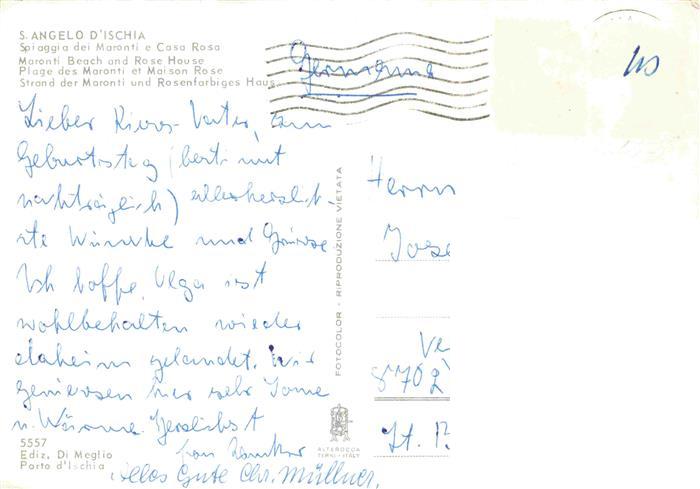 S. ANGELO D'ISCHIA
Spiaggia dei Maronti e Casa Rosa
Maronti Beach and Rose House
Plage des Maronti et Maison Rose
Strand der Maronti und Rosenfarbiges Haus
Germania
Lieber Vater, zum
Geburtstag
nachträglich) allerherzlich-
ste Wünsche und Grüsse
Ich hoffe, ist
wohlbehalten wieder
daheim gelandet. Wir
geniessen hier sehr Sonne
u. Wärme. Herzlichst
Alles Gute Chr. Müllner.
5557
Ediz. Di Meglio
Porto d'Ischia
FOTOCOLOR - RIPRODUZIONE VIETATA
ALTEROCCA
TERNI - ITALY
Herrn
Jose
Ve
8702